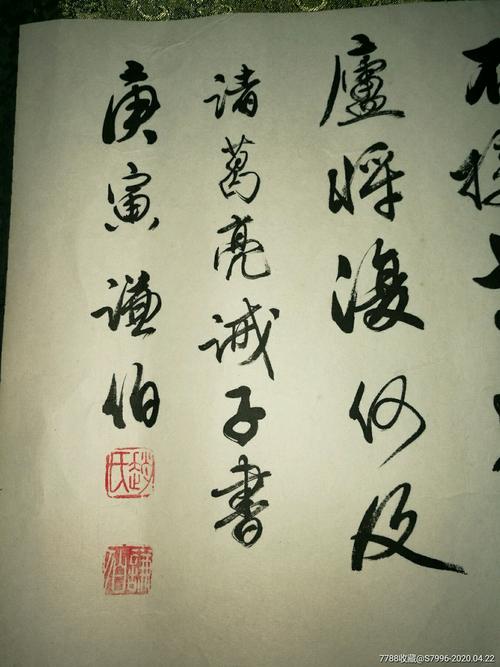 廬將復何及
諸葛亮誡子書
庚寅謙伯
趙氏
謙伯
7788收藏@S7996-2020.04.22